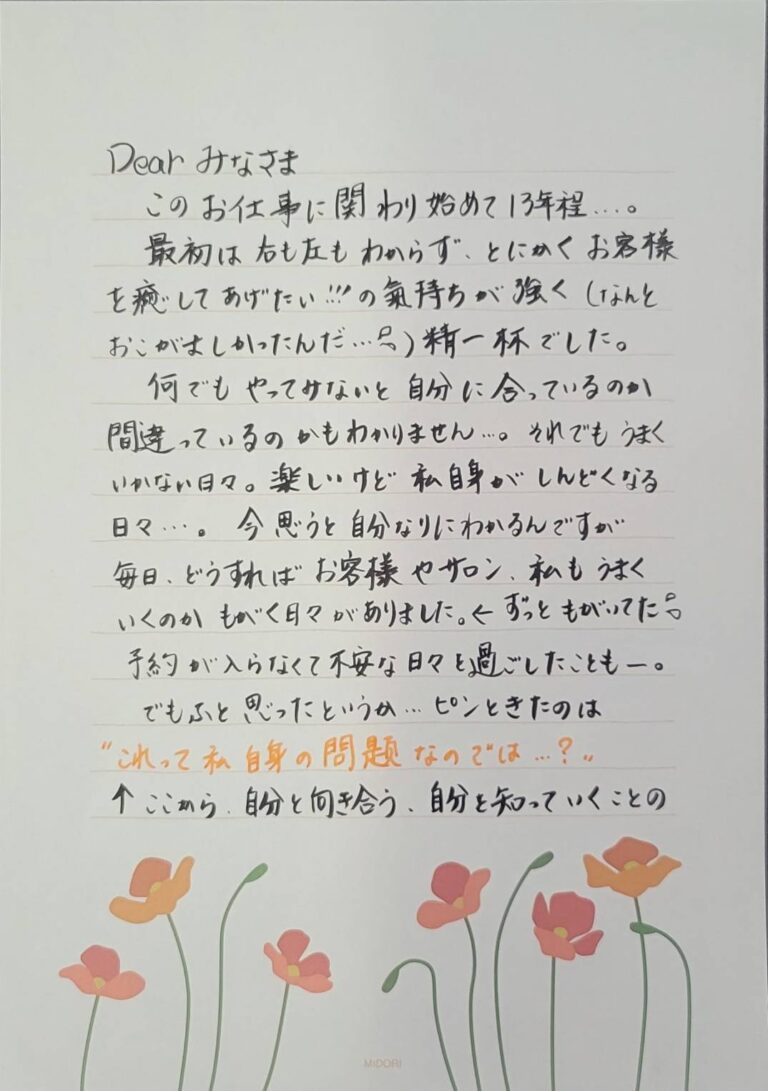 Dear みなさま
このお仕事に関わり始めて13年程…。
最初は右も左もわからず、とにかくお客様
を癒してあげたい!!!の氣持ちが強く(なんと
おこがましかったんだ…)精一杯でした。
何でもやってみないと自分に合っているのか
間違っているのかもわかりません…。それでもうまく
いかない日々。楽しいけど私自身がしんどくなる
日々…。今思うと自分なりにわかるんですが
毎日、どうすればお客様やサロン、私もうまく
いくのかもがく日々がありました。←ずっともがいてた
予約が入らなくて不安な日々を過ごしたことも―。
でもふと思ったというか…ピンときたのは
"これって私自身の問題なのでは…?"
↑ここから、自分と向き合う、自分を知っていくことの
MiDORi